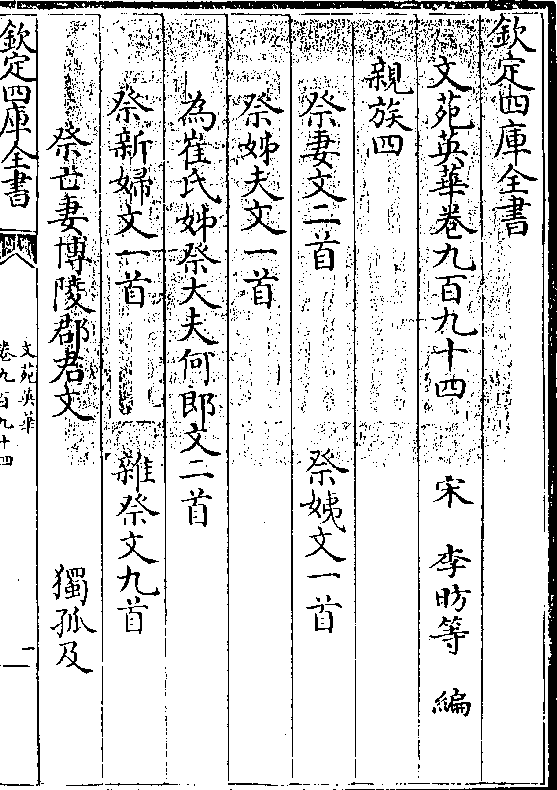 欽定四庫全書
文苑英華卷九百九十四　宋　李昉等　編
親族四
祭妻文二首　祭姨文一首
祭姊夫文一首
為崔氏姊祭大夫何郎文二首
祭新婦文一首　雜祭文九首
祭亡妻博陵郡君文　獨孤及
欽定四庫全書
文苑英華
卷九百九十四
一